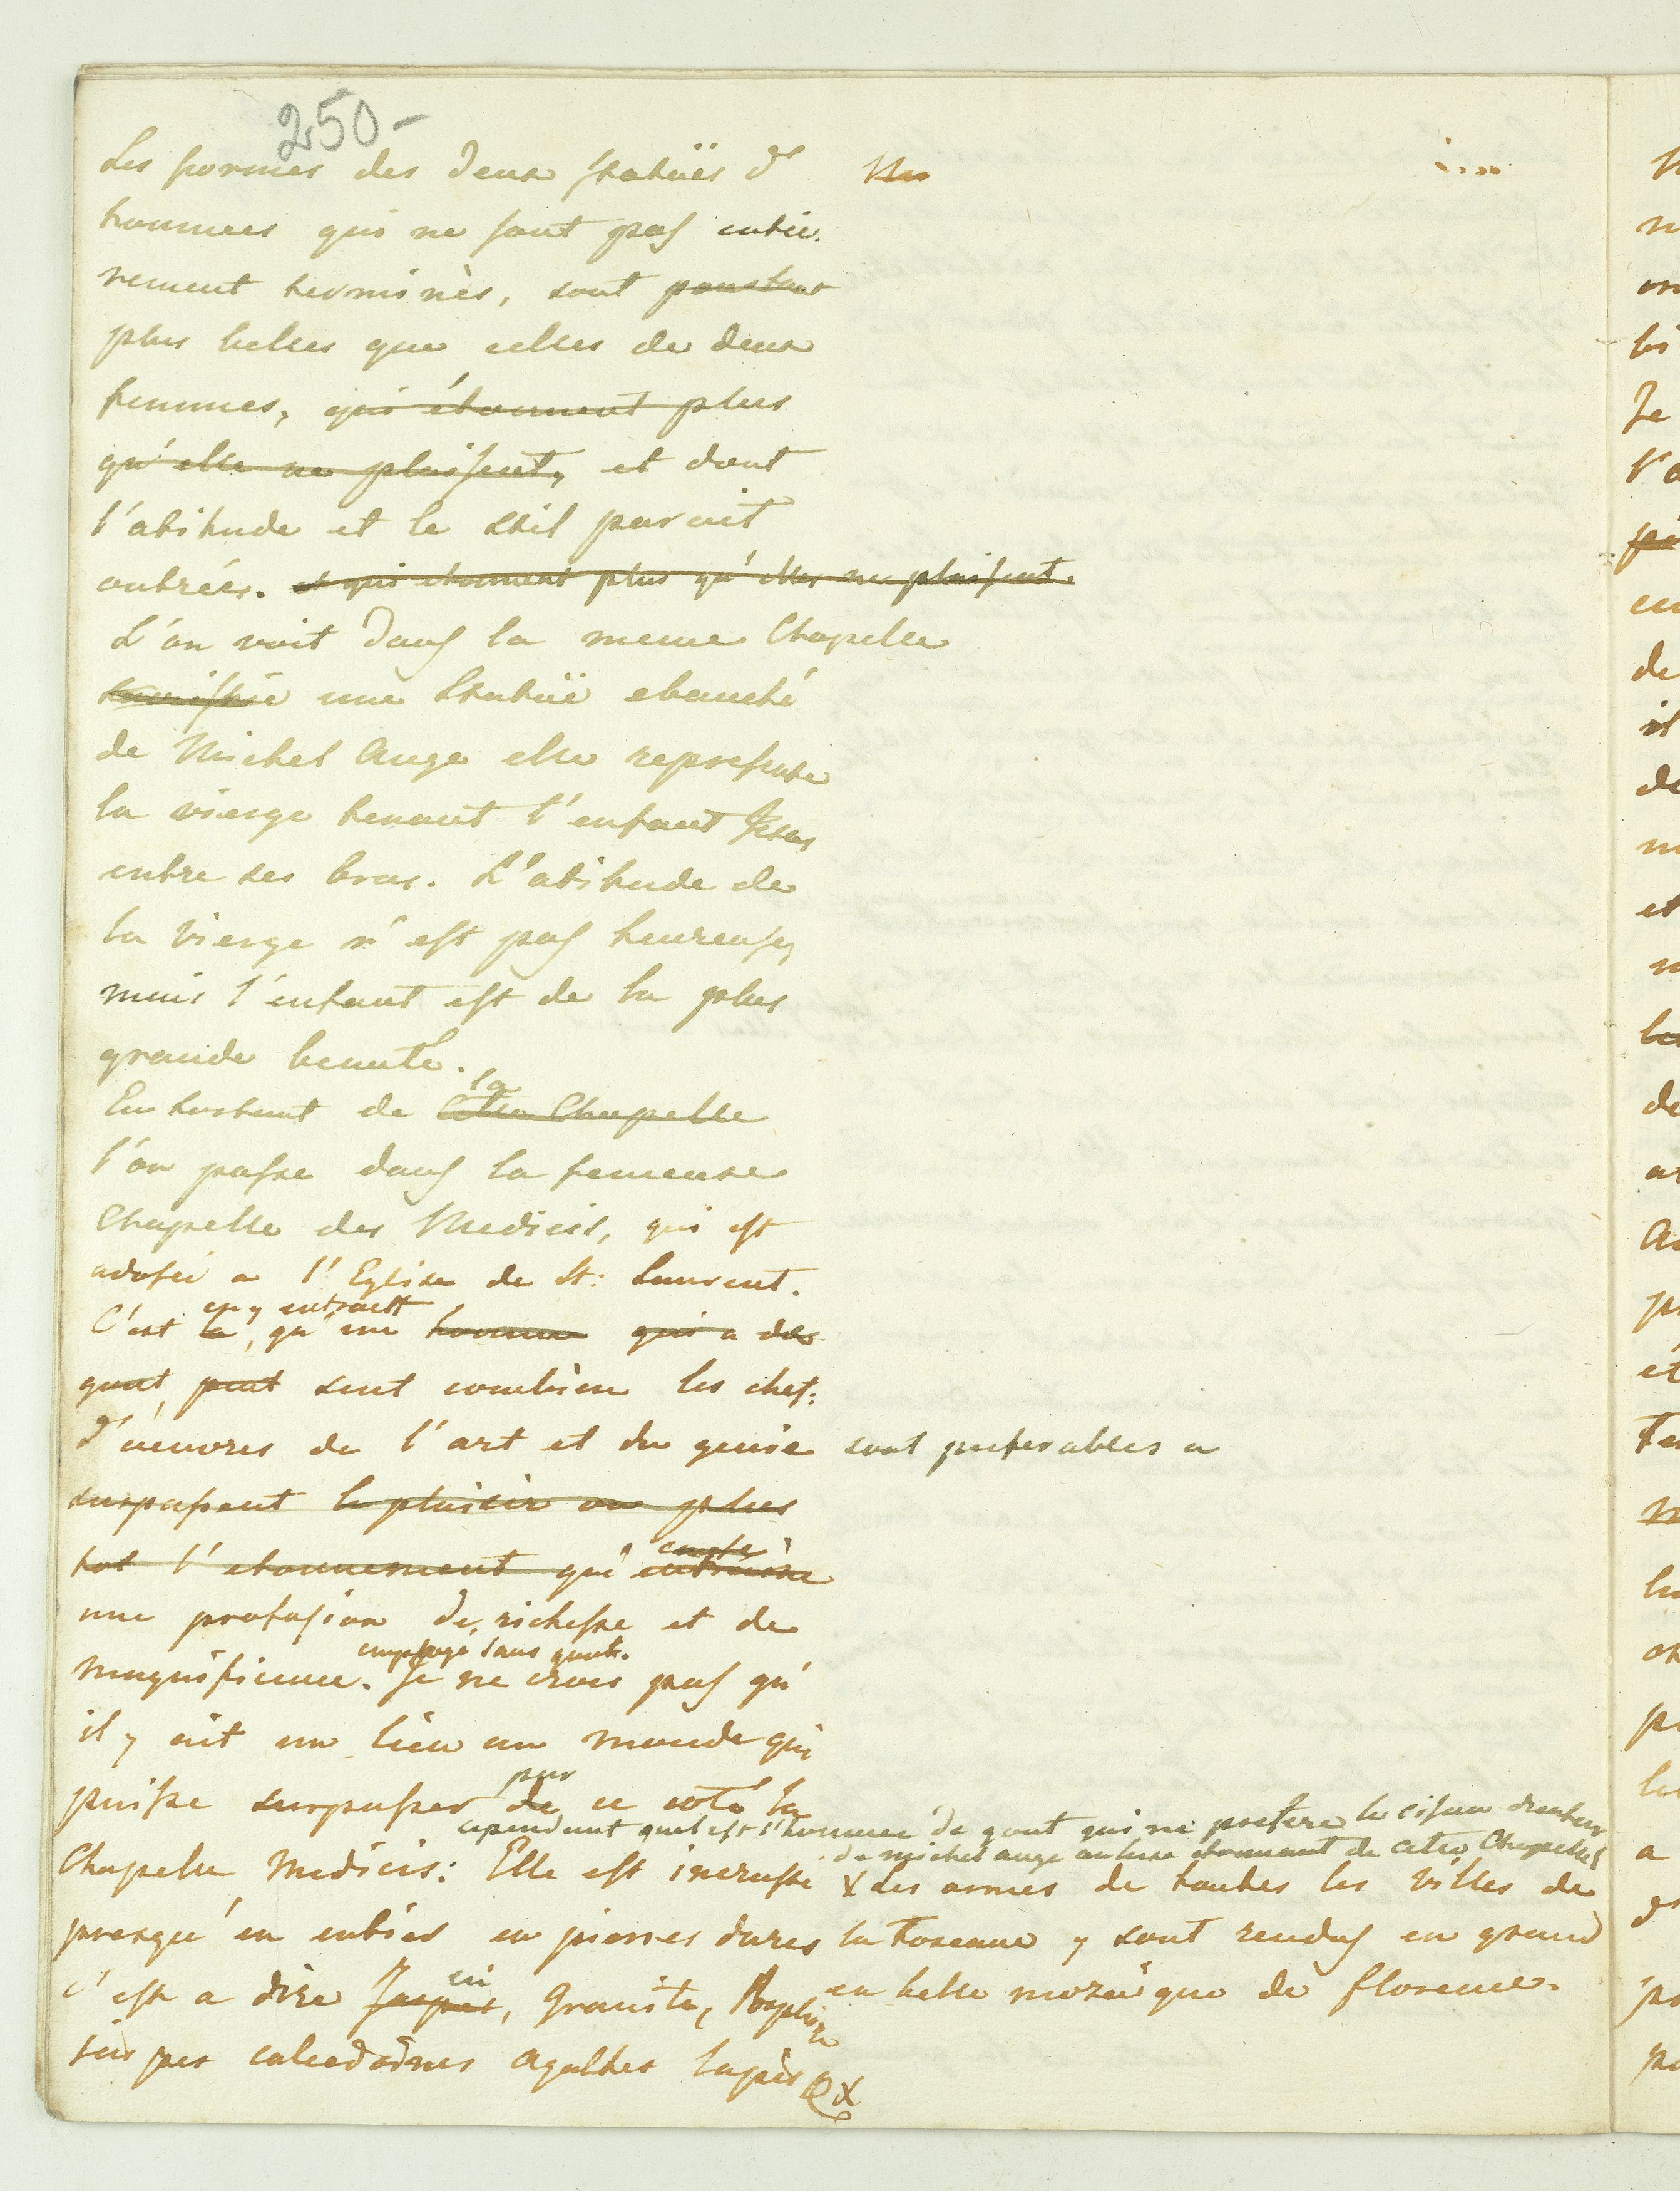 250-
Les formes des deux statuës d'
hommes qui ne sont pas entie-
rement terminès, sont pourtant
plus belles que celles de deux
femmes, qui étonnent plus
qu'elle ne plaisent, et dont
l'atitude et le stil paroit
outrées. et qui etonnent plus qu'elles ne plaisent.
L'on voit dans la meme Chapelle
une Statuë ebauché
de Michel Ange elle represente
la vierge tenant l'enfant Jesus
entre ses bras. L'atitude de
la Vierge n'est pas heureuse,
mais l'enfant est de la plus
grande beauté.
la
En sortant de cette Chapelle
l'on passe dans la fameuse
Chapelle des Medicis, qui est
adossée a l'Eglise de St: Laurent.
en y entrant
C'est la, qu'un homme qui a du
gout, peut sent combien les chef:
d'oeuvres de l'art et du genie sont preferables a
surpassent le plaisir ou plus
tot l'etonnement qu'
une profusion de richesse et de
employé sans gout.
magnificence. Je ne crois pas qu'
il y ait un lieu au monde qui
par
puisse surpasser de ce coté la
cependant quel est l'homme de gout qui ne prefere le ciseau
de michel ange au luxe etonnant de cette Chapelle
Chapelle Medicis: Elle est incruste
presqu'en entier en pierres dures
c'est a dire Jaspes, en Granite, Porphire
jaspes calcedoines agathes lapis &x
x Les armes de toutes les Villes de
la Toscane y sont rendus en grand
en belle mozaïque de florence.